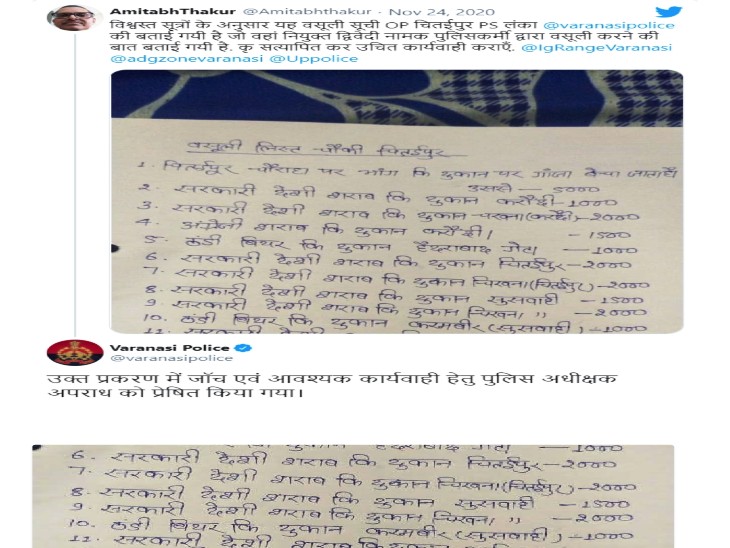 AmitabhThakur @Amitabhthakur · Nov 24, 2020
विश्वस्त सूत्रों के अनुसार यह वसूली सूची OP चितईपुर PS लंका @varanasipolice
की बताई गयी है जो वहां नियुक्त द्विवेदी नामक पुलिसकर्मी द्वारा वसूली करने की
बात बताई गयी है. कृ सत्यापित कर उचित कार्यवाही कराएँ. @IgRangeVaranasi
@adgzonevaranasi @Uppolice
वसूली लिस्ट चौकी चितईपुर
1. चितईपुर चौराहा पर भांग कि दुकान पर गाँजा बेचा जाता है
उससे — 5000
2. सरकारी देशी शराब कि दुकान करौंदी - 1000
3. सरकारी देशी शराब कि दुकान - चखना (करौंदी) - 2000
4. अंग्रेजी शराब कि दुकान करौंदी। - 1500
5. ठंडी बियर कि दुकान हैदराबाद गेट। — 1000
6. सरकारी देशी शराब कि दुकान चितईपुर - 2000
7. सरकारी देशी शराब कि दुकान चिखना (चितईपुर) - 2000
8. सरकारी देशी शराब कि दुकान सुसवाही - 1500
9. सरकारी देशी शराब कि दुकान चिखना " - 2000
10. ठंडी बियर कि दुकान करमवीर (सुसवाही) - 1000
11. सरकारी देशी शराब कि दुकान
Varanasi Police
@varanasipolice
उक्त प्रकरण में जॉच एवं आवश्यक कार्यवाही हेतु पुलिस अधीक्षक
अपराध को प्रेषित किया गया।
हैदराबाद गेट। — 1000
6. सरकारी देशी शराब कि दुकान चितईपुर - 2000
7. सरकारी देशी शराब कि दुकान चिखना (चितईपुर) - 2000
8. सरकारी देशी शराब कि दुकान सुसवाही - 1500
9. सरकारी देशी शराब कि दुकान चिखना " - 2000
10. ठंडी बियर कि दुकान करमवीर (सुसवाही) - 1000
11. सरकारी देशी शराब कि दुकान